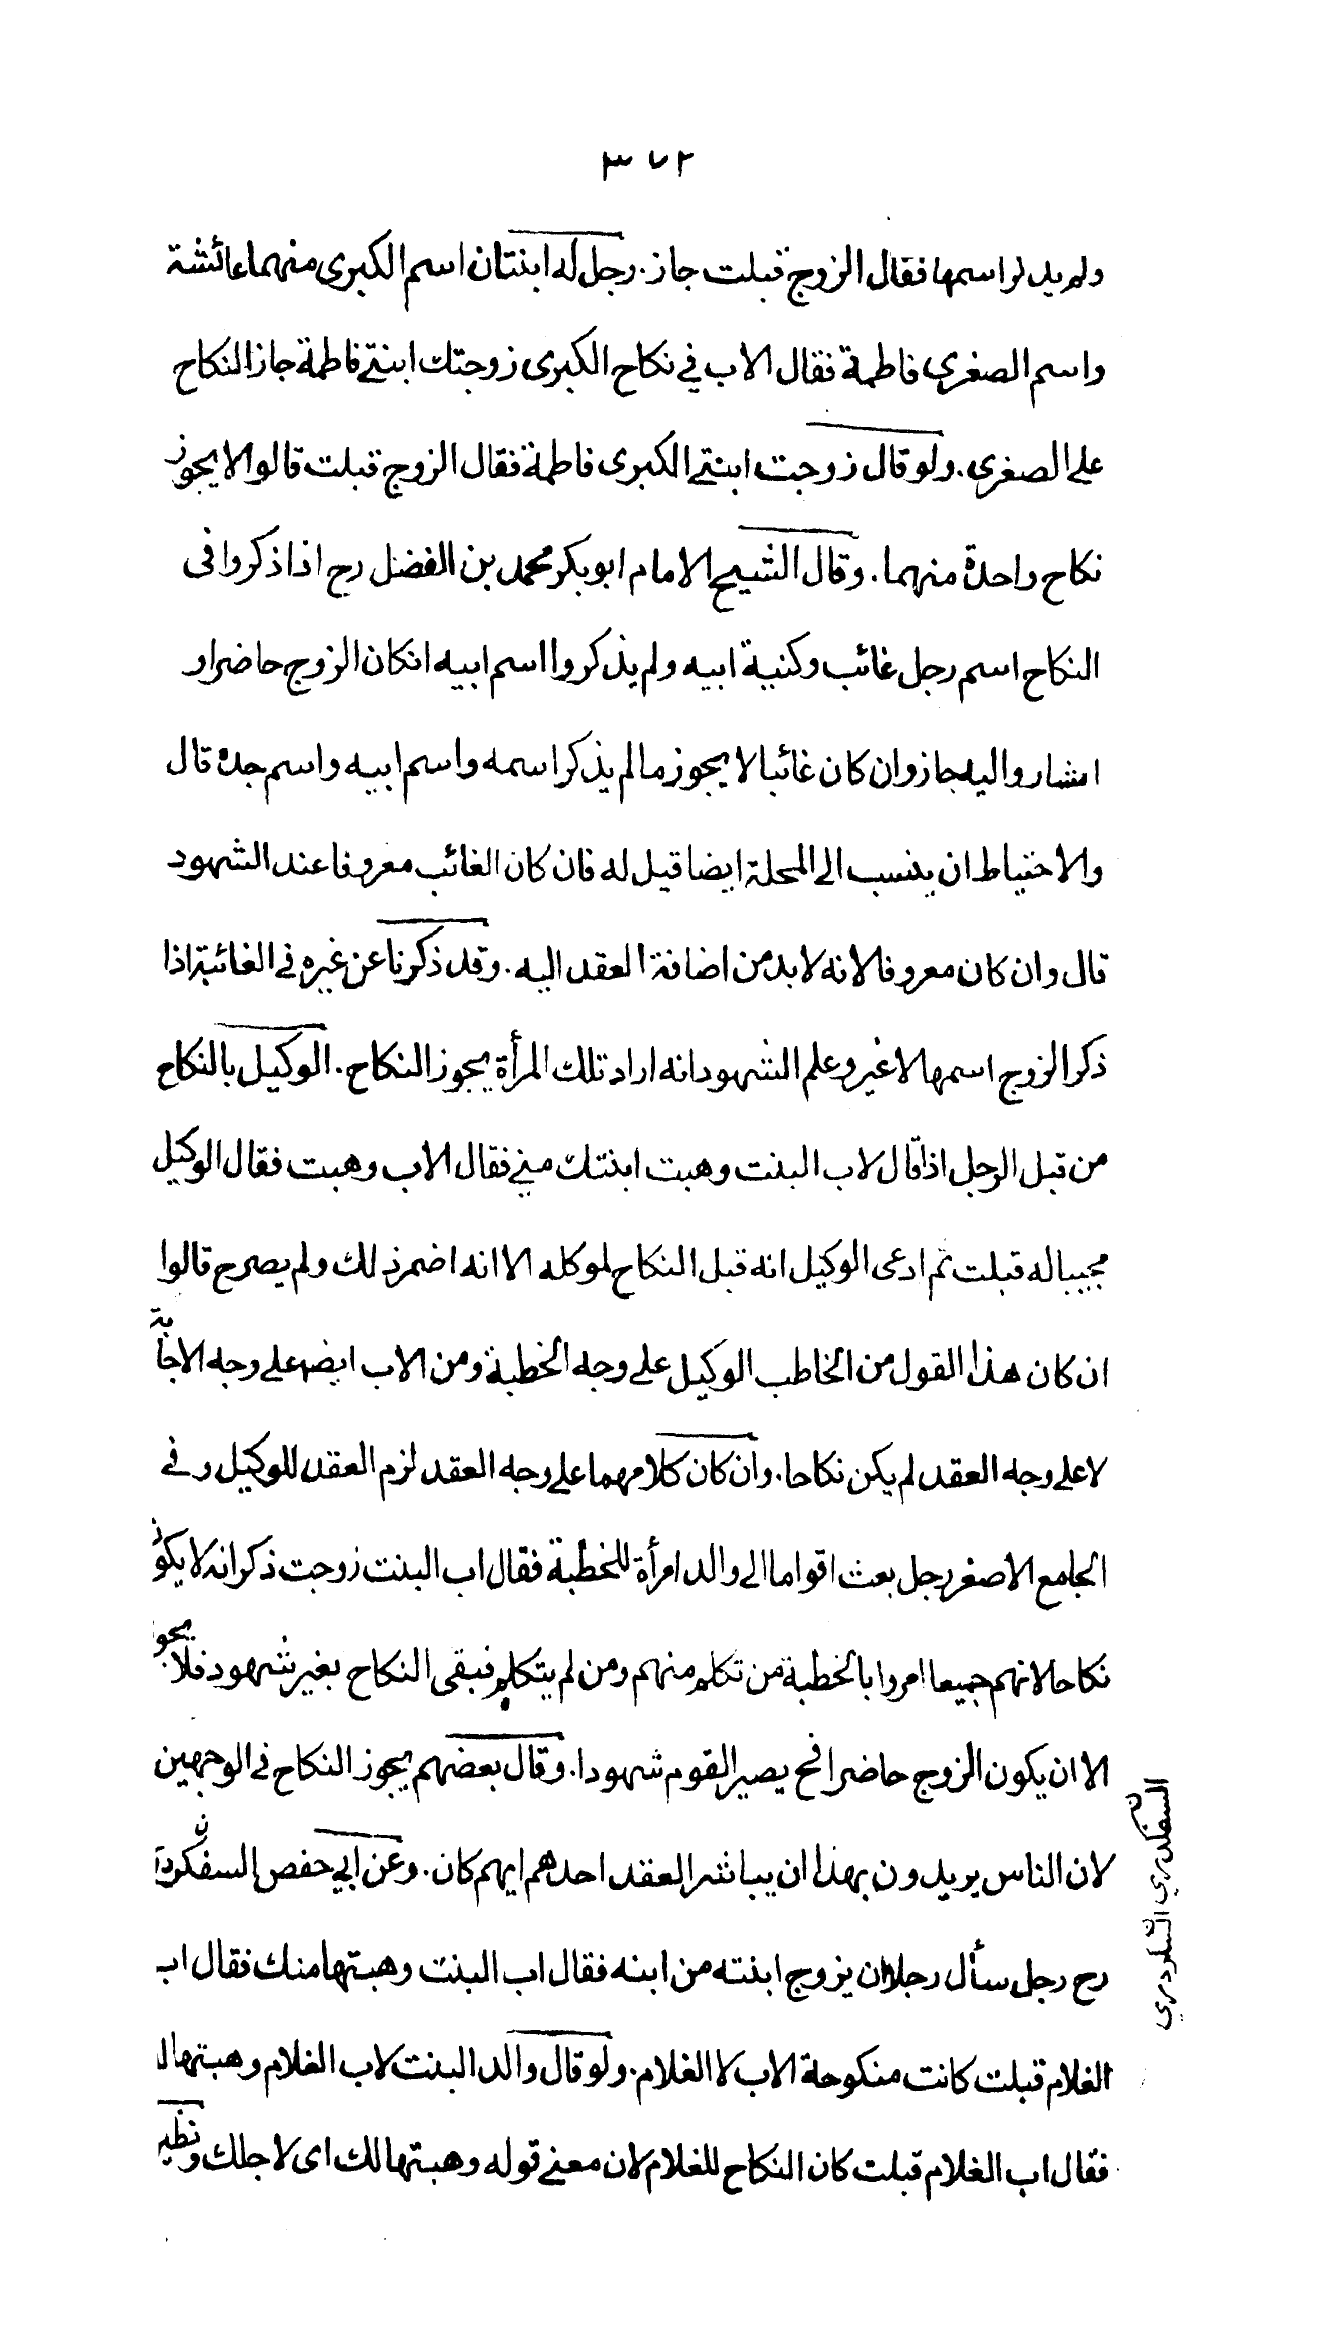 ٣٧٢
ولم يذكر اسمها فقال الزوج قبلت جاز. رجل له ابنتان اسم الكبرى منهما عائشة
واسم الصغرى فاطمة فقال الاب في نكاح الكبرى زوجتك ابنتي فاطمة جاز النكاح
على الصغرى. ولو قال زوجت ابنتي الكبرى فاطمة فقال الزوج قبلت قالوا لا يجوز
نكاح واحدة منهما. وقال الشيخ الامام ابو بكر محمد بن الفضل رح اذا ذكروا في
النكاح اسم رجل غائب وكنية ابيه ولم يذكروا اسم ابيه ان كان الزوج حاضرا و
اشاروا اليه جاز وان كان غائبا لا يجوز ما لم يذكر اسمه واسم ابيه واسم جده قال
والاحتياط ان ينسب الى المحلة ايضا قيل له فان كان الغائب معروفا عند الشهود
قال وان كان معروفا لانه لا بد من اضافة العقد اليه. وقد ذكرنا عن غيره في الغائبة اذا
ذكر الزوج اسمها لا غير وعلم الشهود انه اراد تلك المرأة يجوز النكاح. الوكيل بالنكاح
من قبل الرجل اذا قال لاب البنت وهبت ابنتك مني فقال الاب وهبت فقال الوكيل
مجيبا له قبلت ثم ادعى الوكيل انه قبل النكاح لموكله الا انه اضمر ذلك ولم يصرح قالوا
ان كان هذا القول من الخاطب الوكيل على وجه الخطبة ومن الاب ايضا على وجه الاجابة
لا على وجه العقد لم يكن نكاحا. وان كان كلامهما على وجه العقد لزم العقد للوكيل وفي
الجامع الاصغر رجل بعث اقواما الى والد امرأة للخطبة فقال اب البنت زوجت ذكر انه لا يكون
نكاحا لانهم جميعا امروا بالخطبة من تكلم منهم ومن لم يتكلم فبقى النكاح بغير شهود فلا يجوز
الا ان يكون الزوج حاضرا فح يصير القوم شهودا. وقال بعضهم يجوز النكاح في الوجهين
لان الناس يريدون بهذا ان يباشر العقد احدهم ايهم كان. وعن ابي حفص السفكردري
رح رجل سأل رجلا ان يزوج ابنته من ابنه فقال اب البنت وهبتها منك فقال اب
الغلام قبلت كانت منكوحة الاب لا الغلام. ولو قال والد البنت لاب الغلام وهبتها لك
فقال اب الغلام قبلت كان النكاح للغلام لان معنى قوله وهبتها لك اى لاجلك ونظير